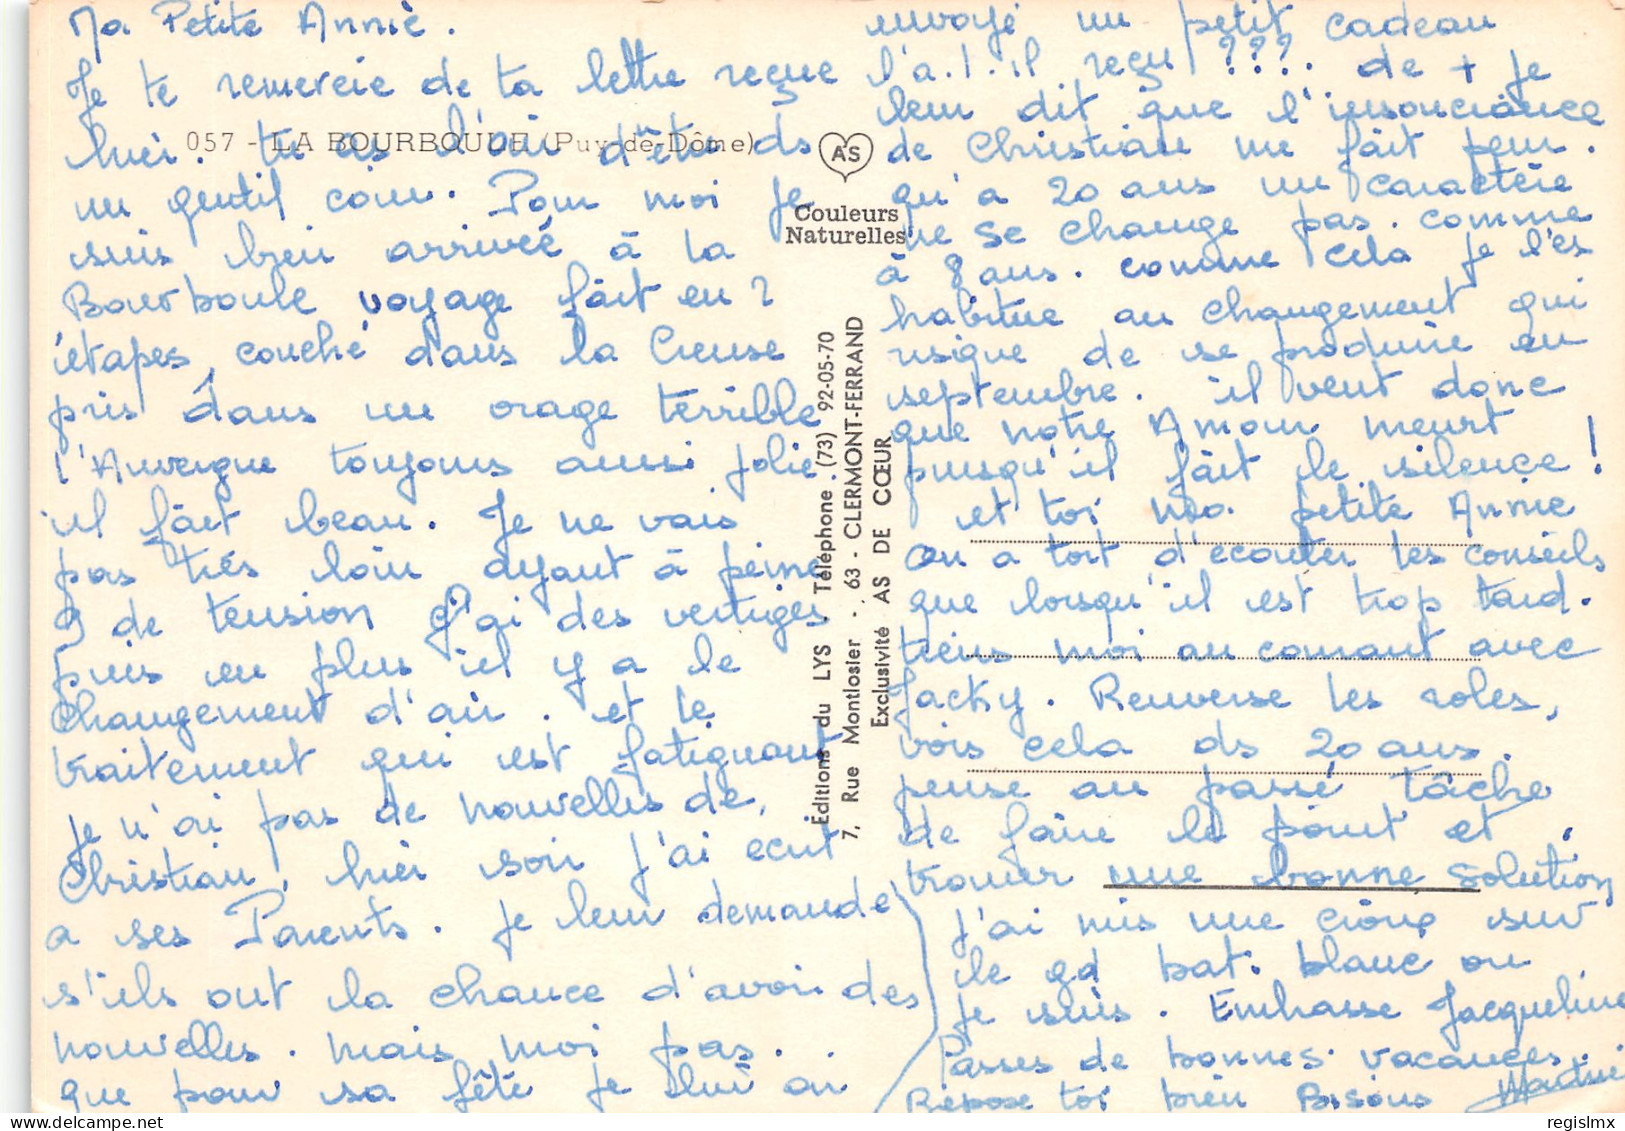 Ma Petite Annie.
Je te remercie de ta lettre reçue
hier. tu as l'air d'être ds
un gentil coin. Pour moi je
suis bien arrivée à la
Bourboule voyage fait en 2
étapes, couché dans la Creuse
pris dans un orage terrible
l'Auvergne toujours aussi jolie
il fait beau. Je ne vais
pas très loin ayant à peine
9 de tension j'ai des vertiges
puis en plus il y a le
changement d'air. et le
traitement qui est fatiguant
je n'ai pas de nouvelles de
Christian, hier soir j'ai ecrit
a ses Parents. je leur demande
s'ils ont la chance d'avoir des
nouvelles. mais moi pas.
que pour sa fête je lui ai
envoyé un petit cadeau
l'a.t.il reçu ???. de + je
leur dit que l'insouciance
de Christian me fait peur.
qu'a 20 ans un caractère
ne se change pas. comme
à 8 ans. comme cela je les
habitue au changement qui
risque de se produire en
septembre. il veut donc
que notre Amour meurt
puisqu'il fait le silence !
et toi ma petite Annie
on a tort d'écouter les conseils
que lorsqu'il est trop tard.
tiens moi au courant avec
Jacky. Renverse les roles,
vois cela ds 20 ans.
pense au passé tâche
de faire le point et
trouver une bonne solution
J'ai mis une croix sur
le gd bat. blanc ou
je suis. Embrasse Jacqueline
Passes de bonnes vacances
Repose toi bien Bisous
057 - LA BOURBOULE (Puy-de-Dôme)
AS
Couleurs
Naturelles
Editions du LYS. Téléphone. (73) 92-05-70
7, Rue Montlosier - 63 - CLERMONT-FERRAND
Exclusivité AS DE CŒUR
regislmx